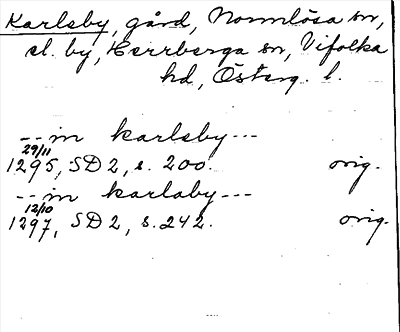 Karlsby, gård, Normlösa sn,
el. by, Herrberga sn, Vifolka
hd, Österg. l.
-- in karlsby ---
29/11
1295, SD 2, s. 200. orig.
-- in karlaby ---
12/10
1297, SD 2, s. 242. orig.